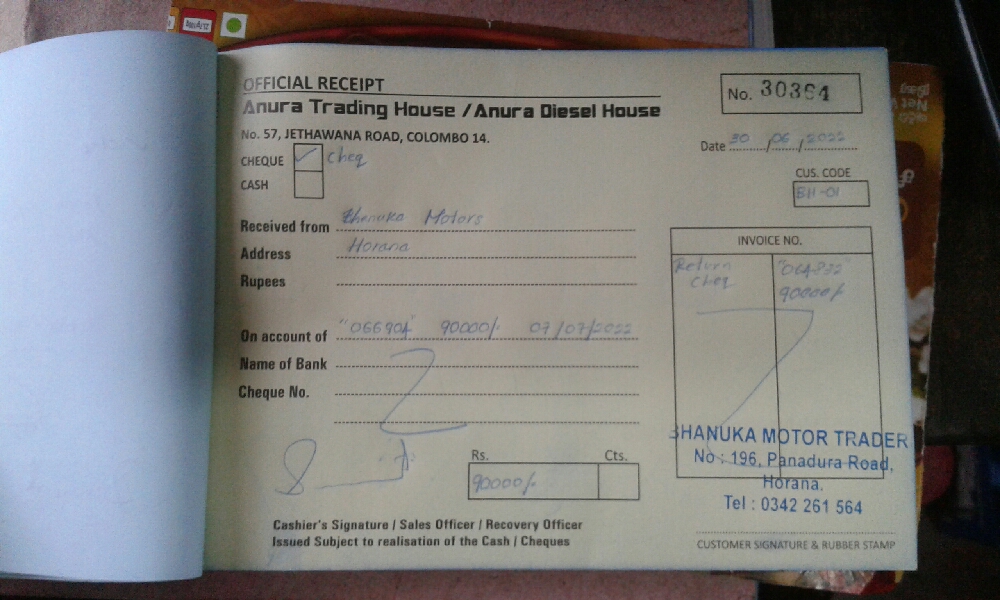 OFFICIAL RECEIPT
Anura Trading House / Anura Diesel House
No. 30364
No. 57, JETHAWANA ROAD, COLOMBO 14.
Date 30 / 06 / 2022
CHEQUE ✓ cheq
CASH
CUS. CODE
BH-01
Received from Bhanuka Motors
Address Horana
Rupees
INVOICE NO.
Return "064832"
cheq 90000/-
On account of "066904" 90000/- 07/07/2022
Name of Bank
Cheque No.
Rs. Cts.
90000/-
BHANUKA MOTOR TRADER
No : 196, Panadura Road,
Horana.
Tel : 0342 261 564
Cashier's Signature / Sales Officer / Recovery Officer
Issued Subject to realisation of the Cash / Cheques
CUSTOMER SIGNATURE & RUBBER STAMP